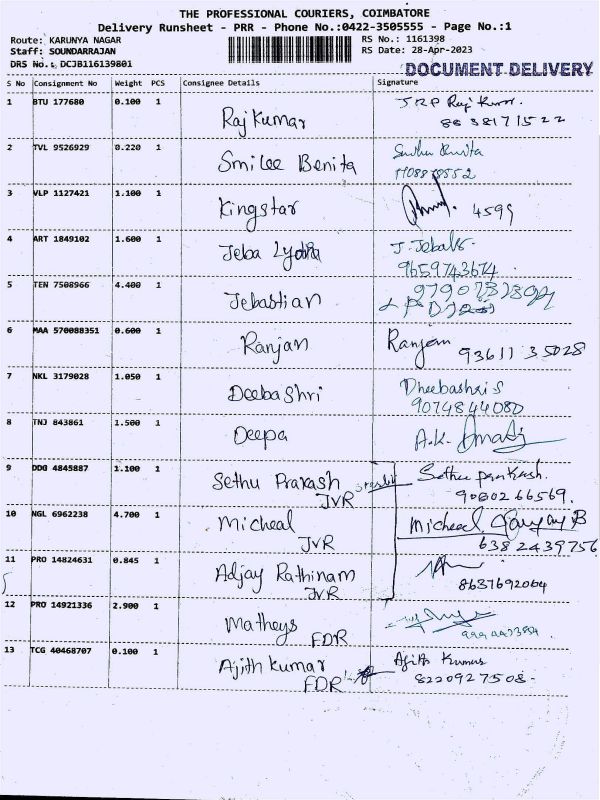 THE PROFESSIONAL COURIERS, COIMBATORE
Delivery Runsheet - PRR - Phone No.:0422-3505555 - Page No.:1
Route: KARUNYA NAGAR RS No.: 1161398
Staff: SOUNDARRAJAN RS Date: 28-Apr-2023
DRS No.: DCJB116139801
DOCUMENT DELIVERY
S No Consignment No Weight PCS Consignee Details Signature
1 BTU 177680 0.100 1 Rajkumar
2 TVL 9526929 0.220 1 Smilee Benita
3 VLP 1127421 1.100 1 Kingstar 4599
4 ART 1849102 1.600 1 Jeba Lydia
9659743674
5 TEN 7508966 4.400 1 Jebastian
6 MAA 570088351 0.600 1 Ranjan Ranjan
93611 35028
7 NKL 3179028 1.050 1 Deebashri Dheebashri S
9074844080
8 TNJ 843861 1.500 1 Deepa A.K.
9 DDO 4845887 1.100 1 Sethu Prakash
JVR 9080266569.
10 NGL 6962238 4.700 1 Micheal Micheal
JVR 6382439756
11 PRO 14824631 0.845 1 Adjay Rathinam
JVR 8637692064
12 PRO 14921336 2.900 1 Matheys
FDR
13 TCG 40468707 0.100 1 Ajith kumar Ajith Kumar
FDR 8220927508-